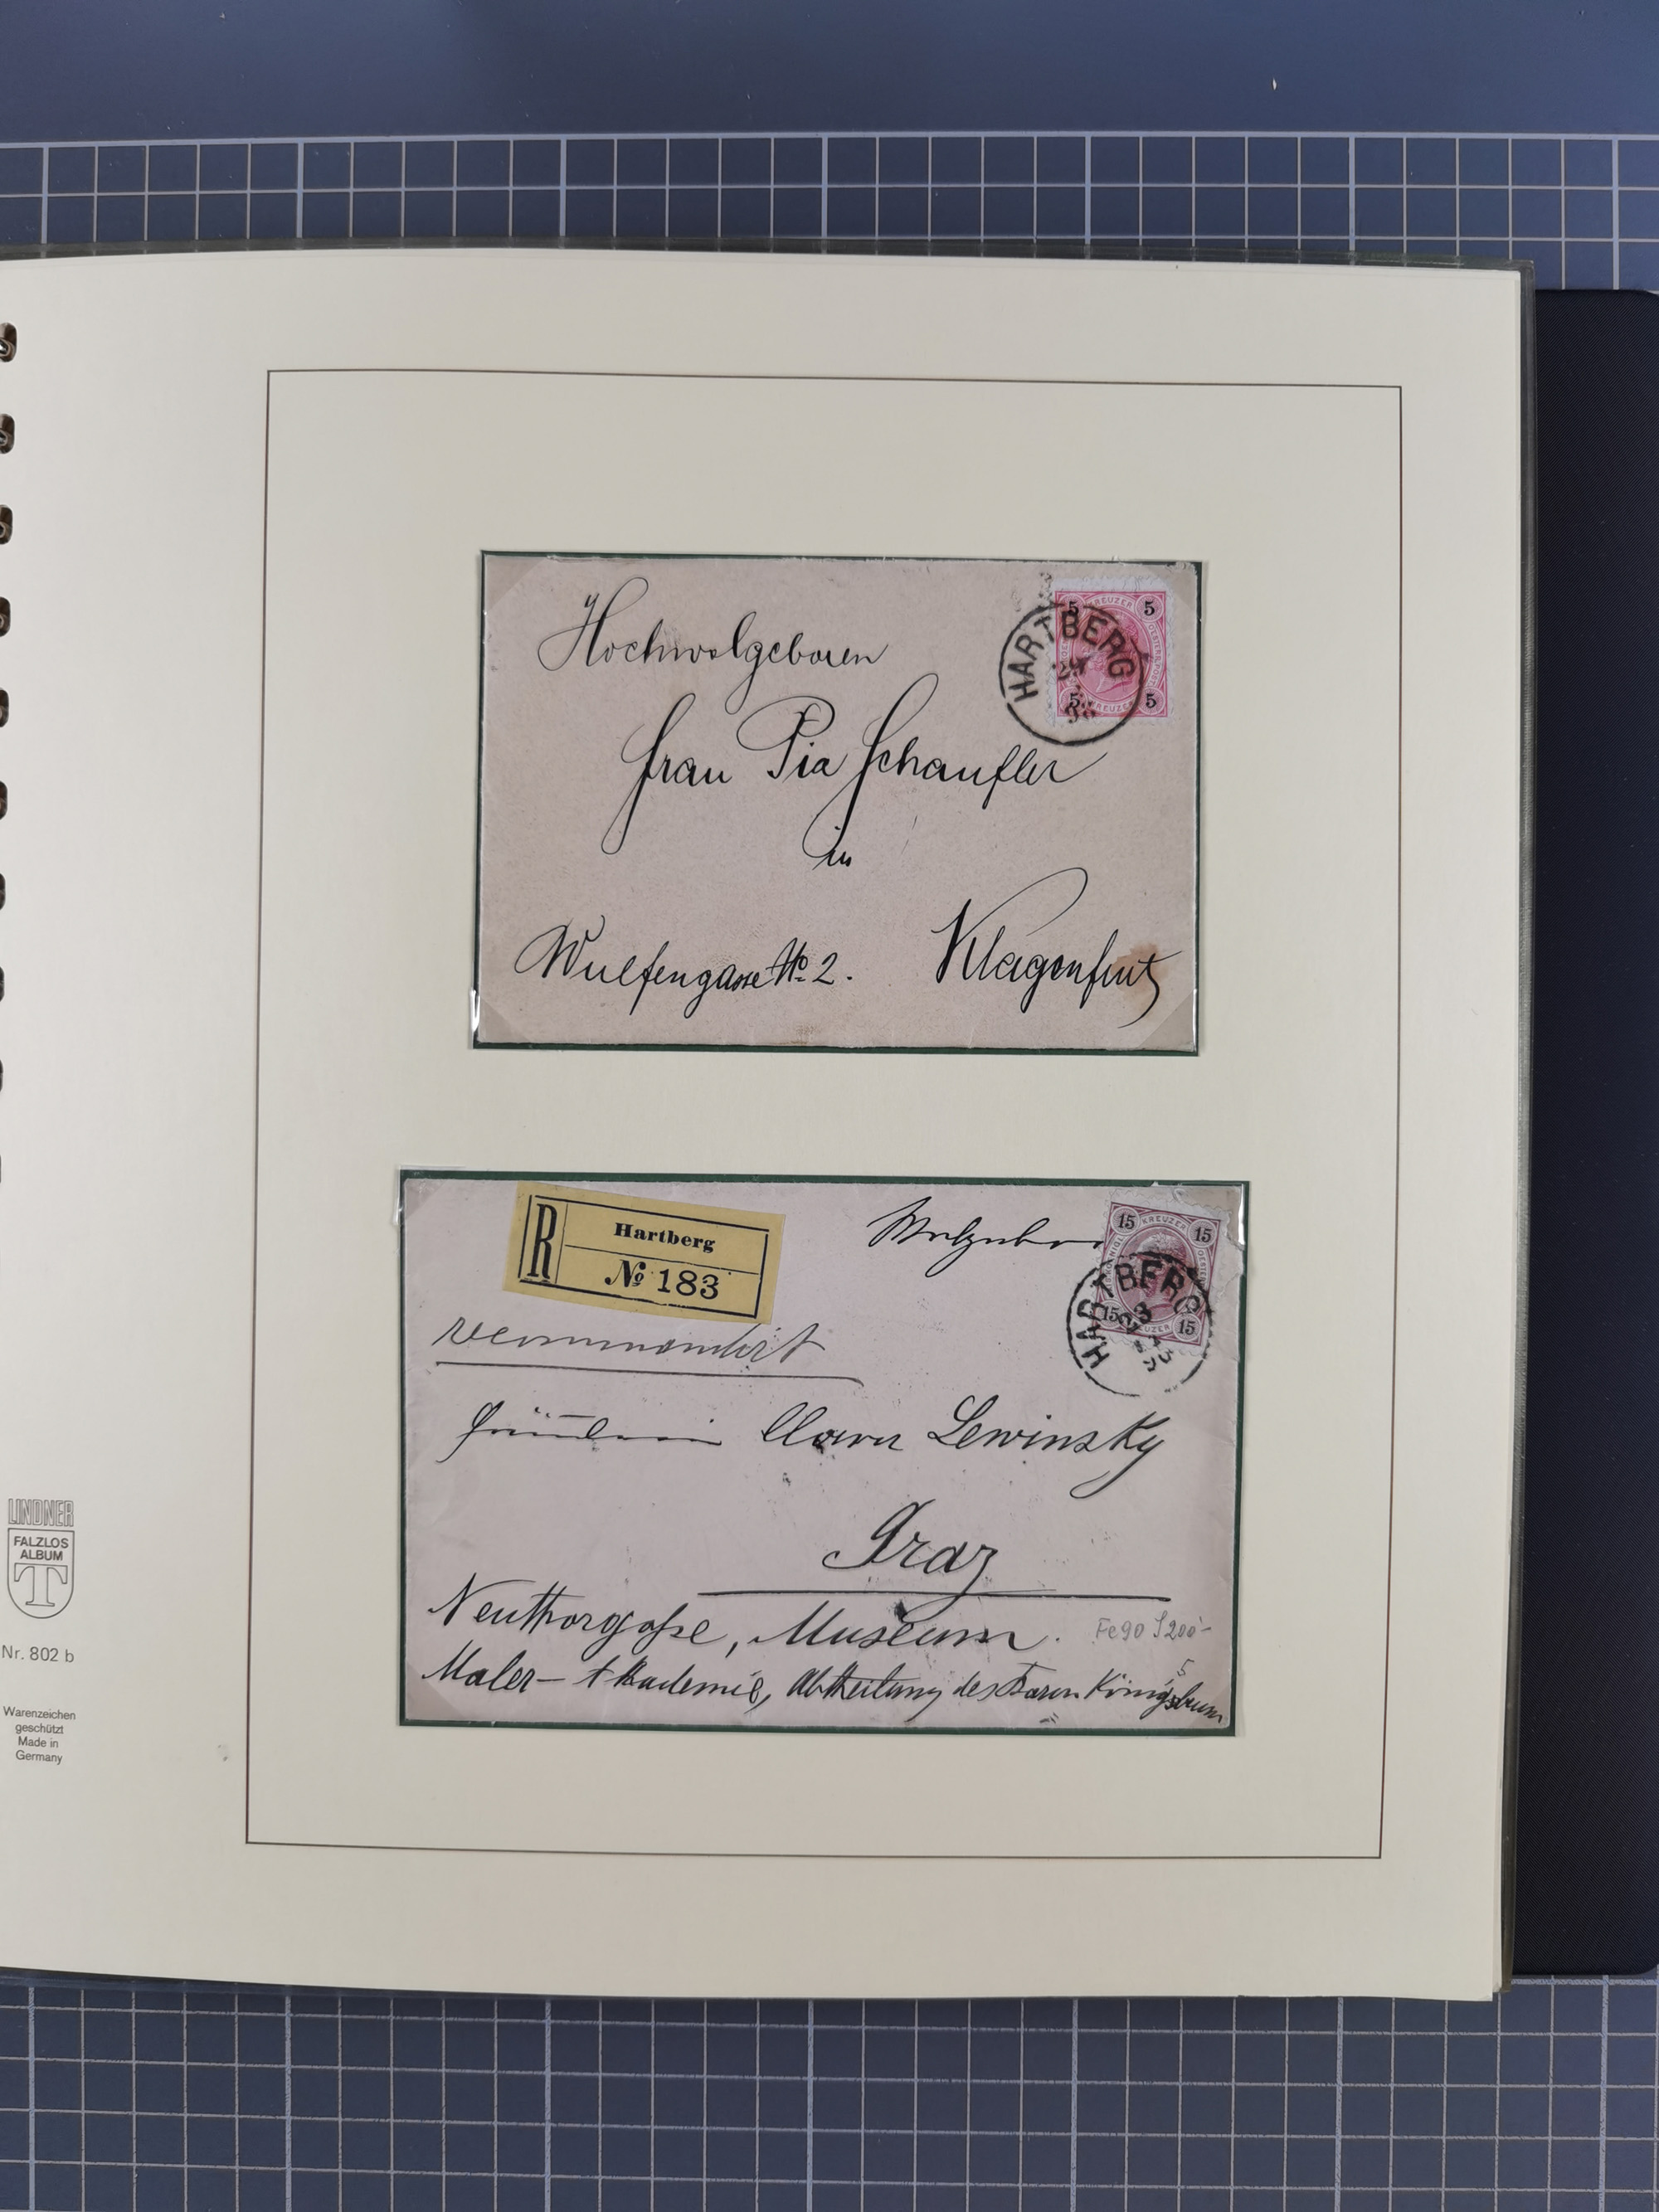 Hochwolgeboren
Frau Pia Schaufler
in
Wulfengasse No 2.
Klagenfurt
5 KREUZER 5
5 KREUZER 5
HARTBERG
R
Hartberg
No 183
recommandirt
15 KREUZER 15
15 KREUZER 15
HARTBERG
Fräulein Clara Lewinsky
Graz
Neuthorgaße, Museum.
Fe90 S200-
Maler-Akademie, Abtheilung des Baron Königsbrunn
LINDNER
FALZLOS
ALBUM
T
Nr. 802 b
Warenzeichen
geschützt
Made in
Germany